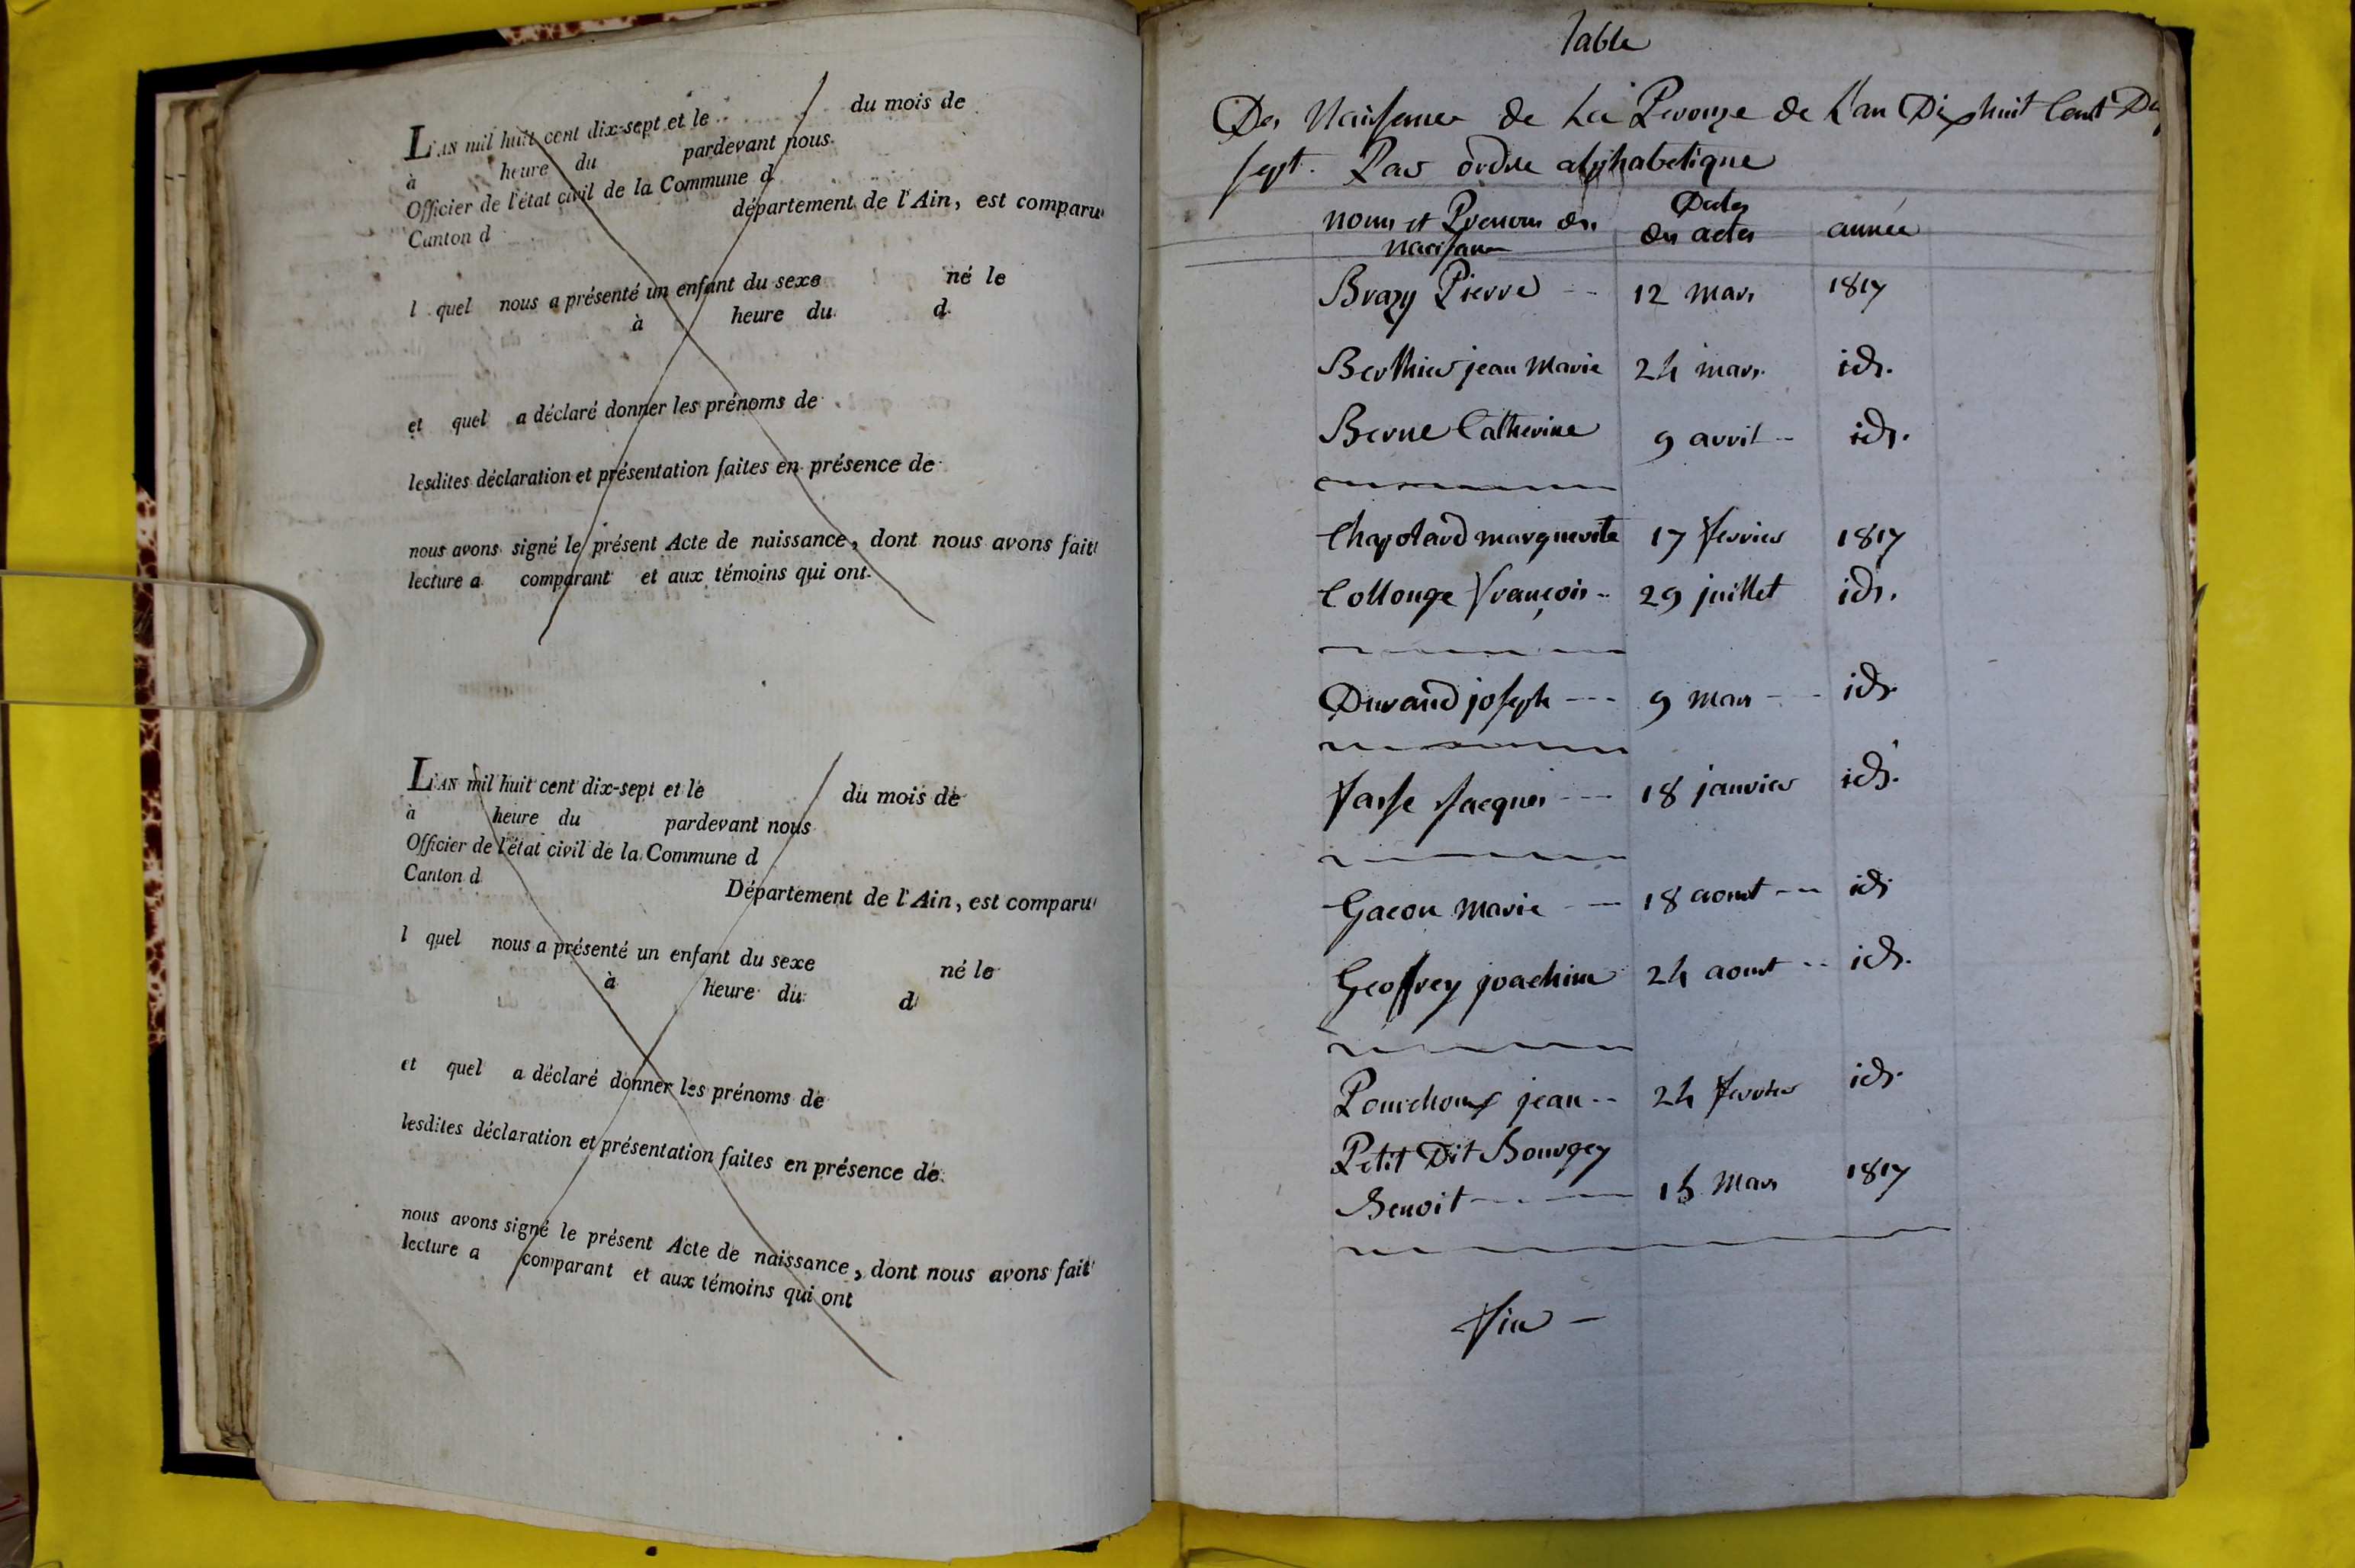 L'AN mil huit cent dix-sept et le du mois de
à heure du pardevant nous
Officier de l'état civil de la Commune d
Canton d département de l'Ain, est comparu
l quel nous a présenté un enfant du sexe né le
à heure du d
et quel a déclaré donner les prénoms de
lesdites déclaration et présentation faites en présence de
nous avons signé le présent Acte de naissance, dont nous avons fait
lecture a comparant et aux témoins qui ont
L'AN mil huit cent dix-sept et le du mois de
à heure du pardevant nous
Officier de l'état civil de la Commune d
Canton d Département de l'Ain, est comparu
l quel nous a présenté un enfant du sexe né le
à heure du d
et quel a déclaré donner les prénoms de
lesdites déclaration et présentation faites en présence de
nous avons signé le présent Acte de naissance, dont nous avons fait
lecture a comparant et aux témoins qui ont
Table
Des Naissances de La Perouze de L'an Dix huit Cent Dix
sept. Par ordre alphabetique
noms et Prenoms des naissances Dates des actes année
Brazy Pierre -- 12 mars 1817
Berthier jean Marie 24 mars id.
Berne Catherine 9 avril -- id.
Chapolard marguerite 17 fevrier 1817
Collonge françois -- 29 juillet id.
Durand joseph --- 9 mars -- id.
fasse Jacques --- 18 janvier id.
Gacon Marie -- 18 aout -- id
Geoffrey joachim 24 aout -- id.
Pourchoux jean -- 24 fevrier id.
Petit Dit Bourgey
Benoit --- 15 Mars 1817
fin -